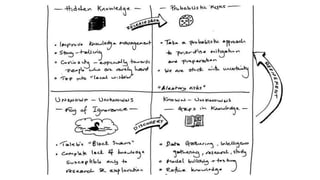 — Hidden Knowledge —
• Improve knowledge management
• Story-telling
• Curiosity - especially towards
people who are rarely heard
• Tap into "local wisdom"
— Probabilistic Risks —
• Take a probabilistic approach
to prioritise mitigation
and preparation
• We are stuck with uncertainty
"Aleatory risks"
REFINEMENT
UNKNOWN - UNKNOWNS
— Fog of Ignorance —
• Taleb's "Black Swans"
• Complete lack of knowledge
susceptible only to
research & exploration
DISCOVERY
KNOWN - UNKNOWNS
— GAPS in Knowledge —
• Data Gathering, Intelligence
gathering, research, study
• Model building + testing
• Refine knowledge